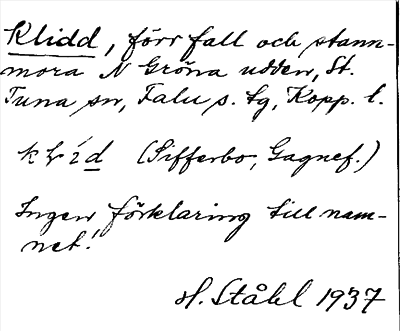 Klidd, förr fall och stann-
mora N Gröna udden, St.
Tuna sn, Falu s. tg, Kopp. l.
klíd (Sifferbo, Gagnef.)
Ingen förklaring till nam-
net!
H. Ståhl 1937